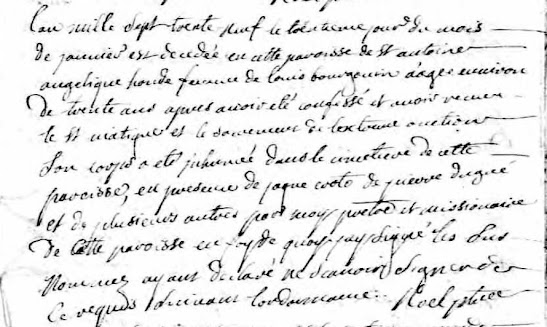 Lan mille sept trente neuf le trentieme jour du mois
de janvier est decedée en cette paroisse de St antoine
angelique houde femme de louis bourgouin agée environ
de trente ans apres avoir eté confessé et avoir receu
le St viatique et le sacrement de lextreme onction
Son corps a eté inhumée dans le cimetiere de cette
paroisse, en presence de jaque croto de pierre dugré
et de plusieurs autres par moy pretre et missionaire
de cette paroisse en foy de quoy jay signé les sus
Nommez ayant declaré ne scavoir signer de
ce requis suivant lordonnance. Noel ptre